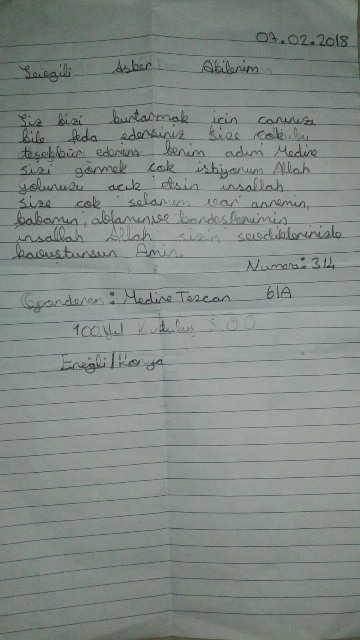 07.02.2018
Sevgili Asker Abilerim
Siz bizi kurtarmak için canınızı
bile feda edersiniz size çok
teşekkür ederim benim adım Medine
sizi görmek çok istiyorum Allah
yolunuzu açık etsin inşallah
size çok selamım var annemin,
babamın, ablamın ve kardeşlerimin
inşallah Allah sizin sevdiklerinizle
kavuştursun Amin.
Numara: 314
Gönderen: Medine Tezcan 6/A
100.Yıl Kurtuluş İ.O.O
Ereğli/Konya